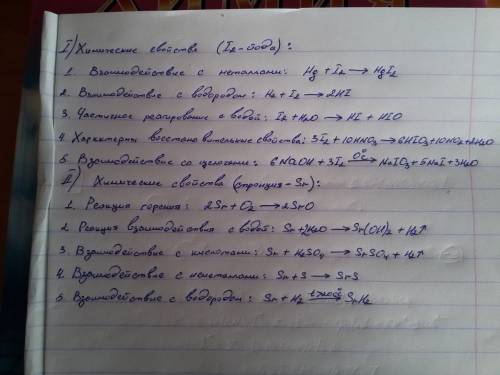 I) Химические свойства (I₂ - йода):
1. Взаимодействие с металлами: Hg + I₂ → HgI₂
2. Взаимодействие с водородом: H₂ + I₂ → 2HI
3. Частичное реагирование с водой: I₂ + H₂O → HI + HIO
4. Характерны восстановительные свойства: 3I₂ + 10HNO₃ → 6HIO₃ + 10NO + 2H₂O
5. Взаимодействие со щелочами: 6NaOH + 3I₂ → NaIO₃ + 5NaI + 3H₂O
II) Химические свойства (стронция - Sr):
1. Реакция горения: 2Sr + O₂ → 2SrO
2. Реакция взаимодействия с водой: Sr + 2H₂O → Sr(OH)₂ + H₂↑
3. Взаимодействие с кислотами: Sr + H₂SO₄ → SrSO₄ + H₂↑
4. Взаимодействие с неметаллами: Sr + S → SrS
5. Взаимодействие с водородом: Sr + H₂ → SrH₂